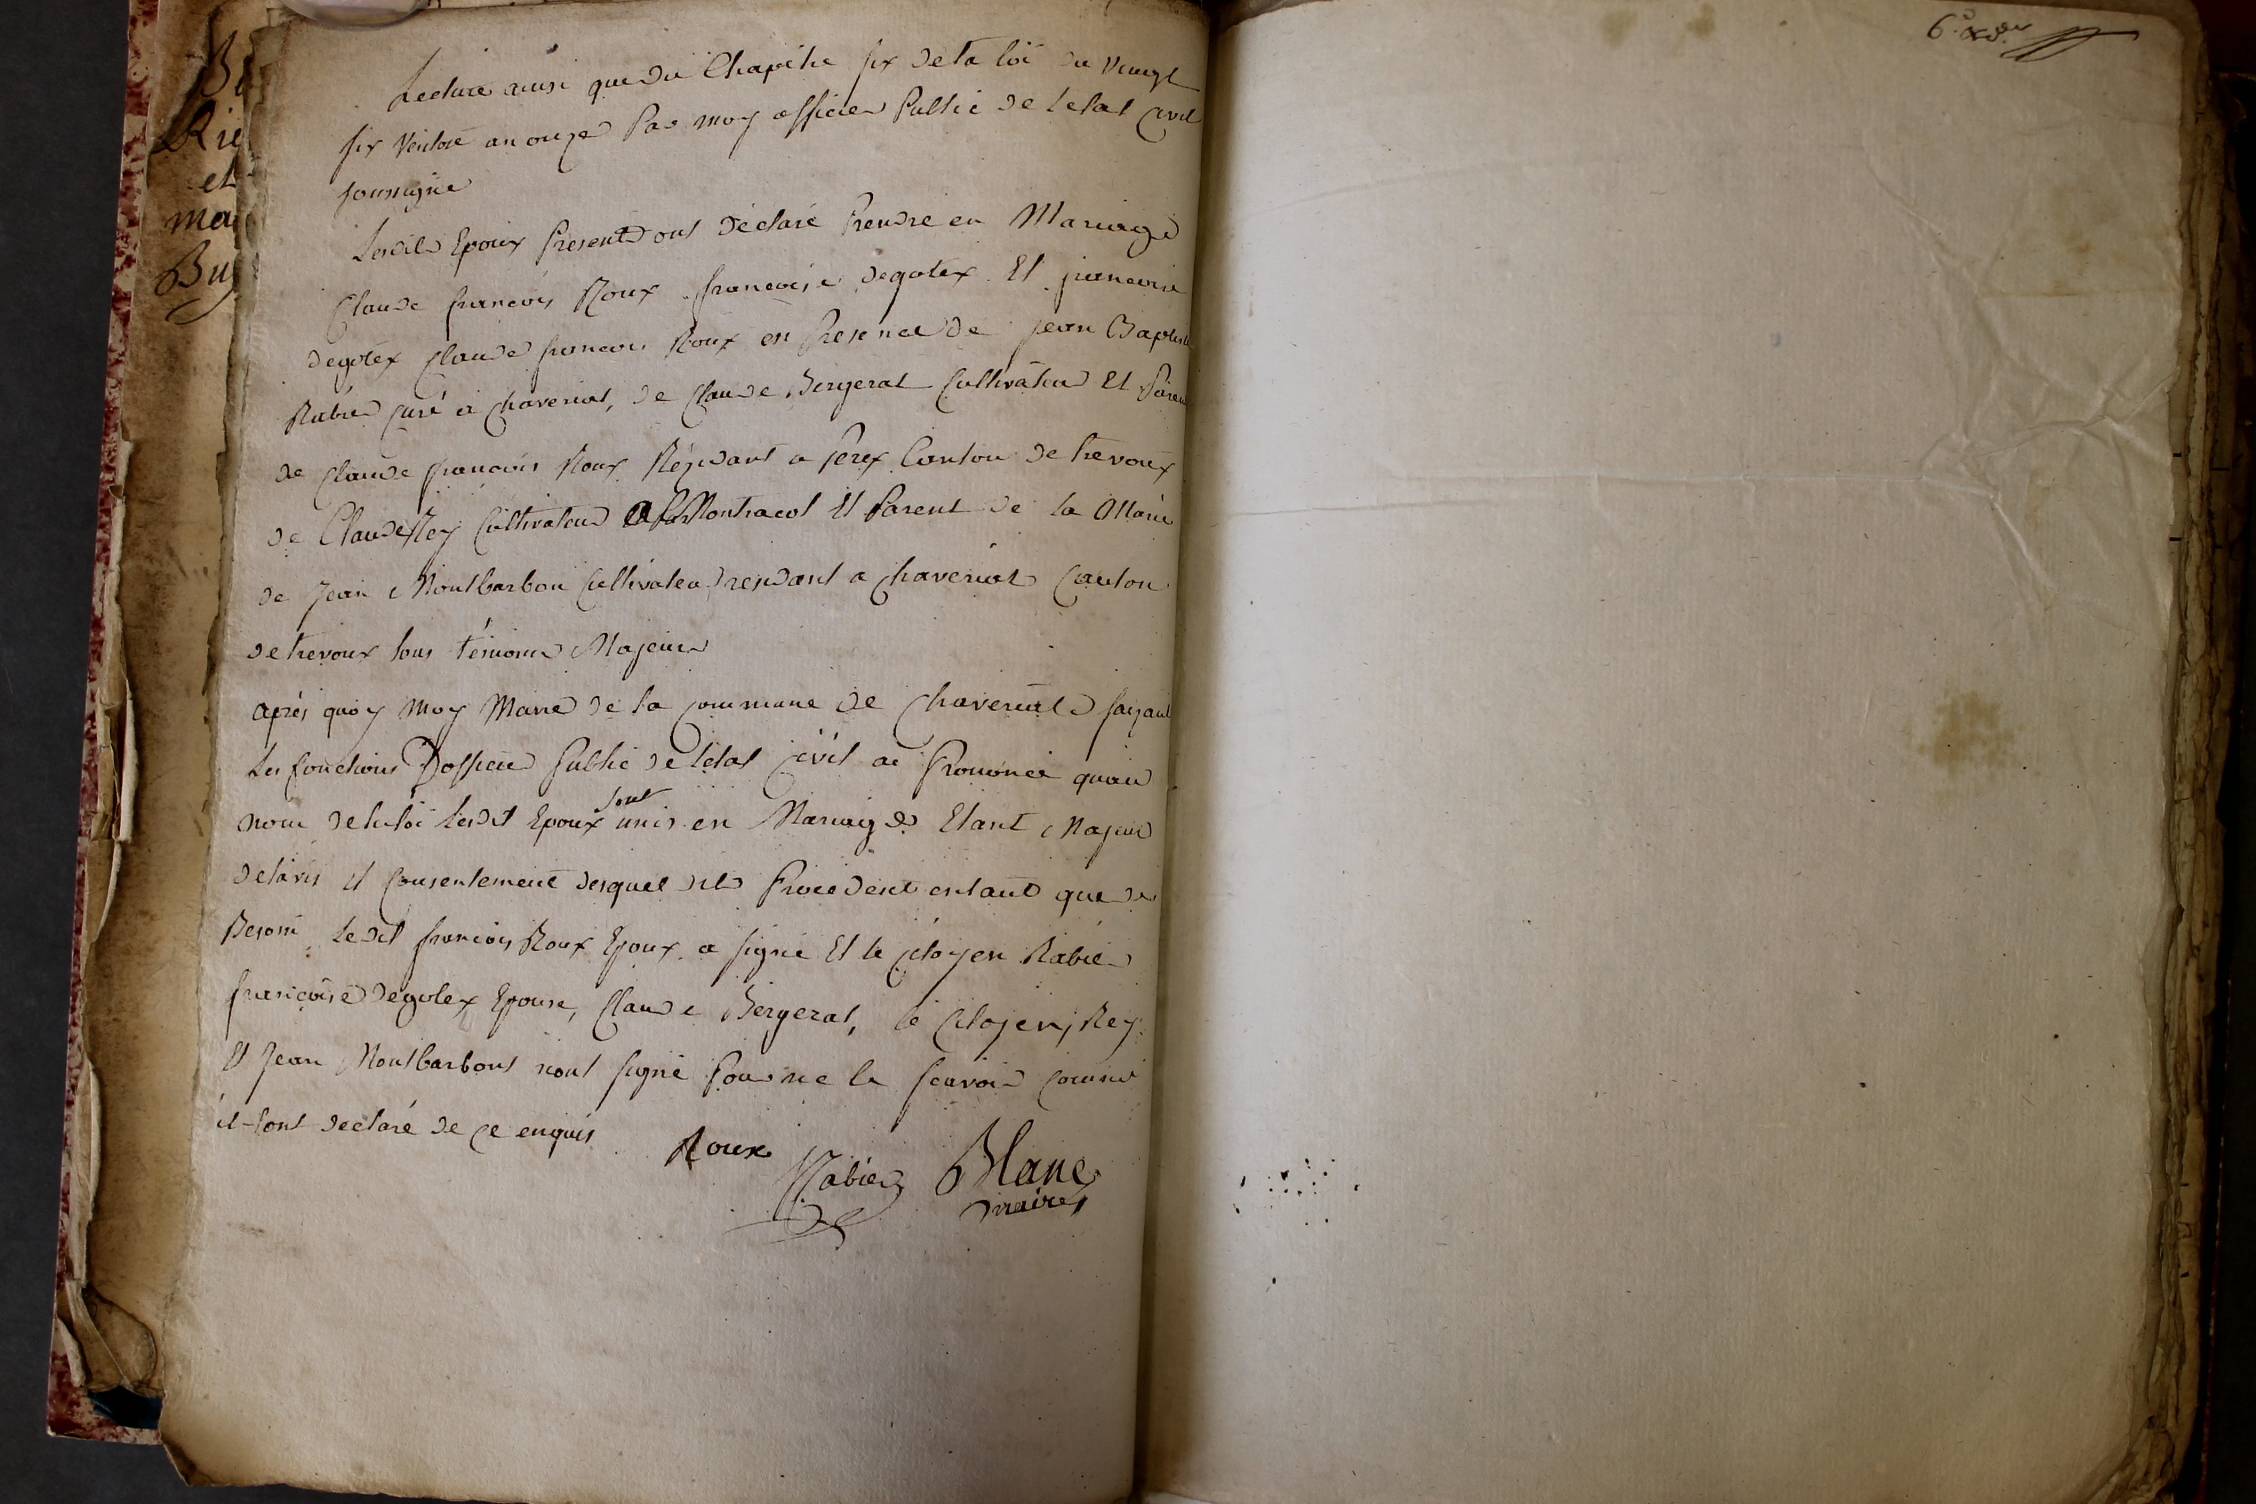 Be
Rie
et
ma
Bu
Lecture ainsi que du Chapitre six de la loi du vingt
six Ventose an onze Par moy officier Public de letat Civil
soussigné
Lesdits Epoux Present ont déclaré Prendre en Mariage
Claude francois Roux francoise degotex Et francoise
degotex Claude francois Roux en Presence de jean Baptiste
Rabier curé a chaveriat, de Claude Bergerat Cultivateur Et Parent
de Claude francois Roux Résidant a perex Canton de trevoux
de Claude Rey Cultivateur a Montracol Et Parent de la Marié
de Jean Montbarbon Cultivateur residant a chaveriat Canton
de trevoux tous témoins Majeurs
après quoy moy Maire de la commune de chaveriat faizant
Les fonctions D'officier Public de letat Civil ai Prononcé quau
nom de la loi Lesdit Epoux sont unis en Mariage Etant Majeur
delavis et Consentement desquel dit Procedent entant que de
Besoin Ledit francois Roux Epoux a signé Et le citoyen Rabier
francoise degotex Epouse, Claude Bergerat, le Citoyen, Rey
Et Jean Montbarbont nont signé Pour ne le scavoir comme
il-sont declaré de ce enquis
Roux
Rabier Blanc
maire
6e